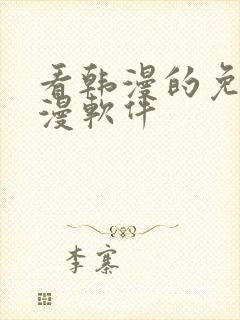 看韩漫的免
漫软件
李寨